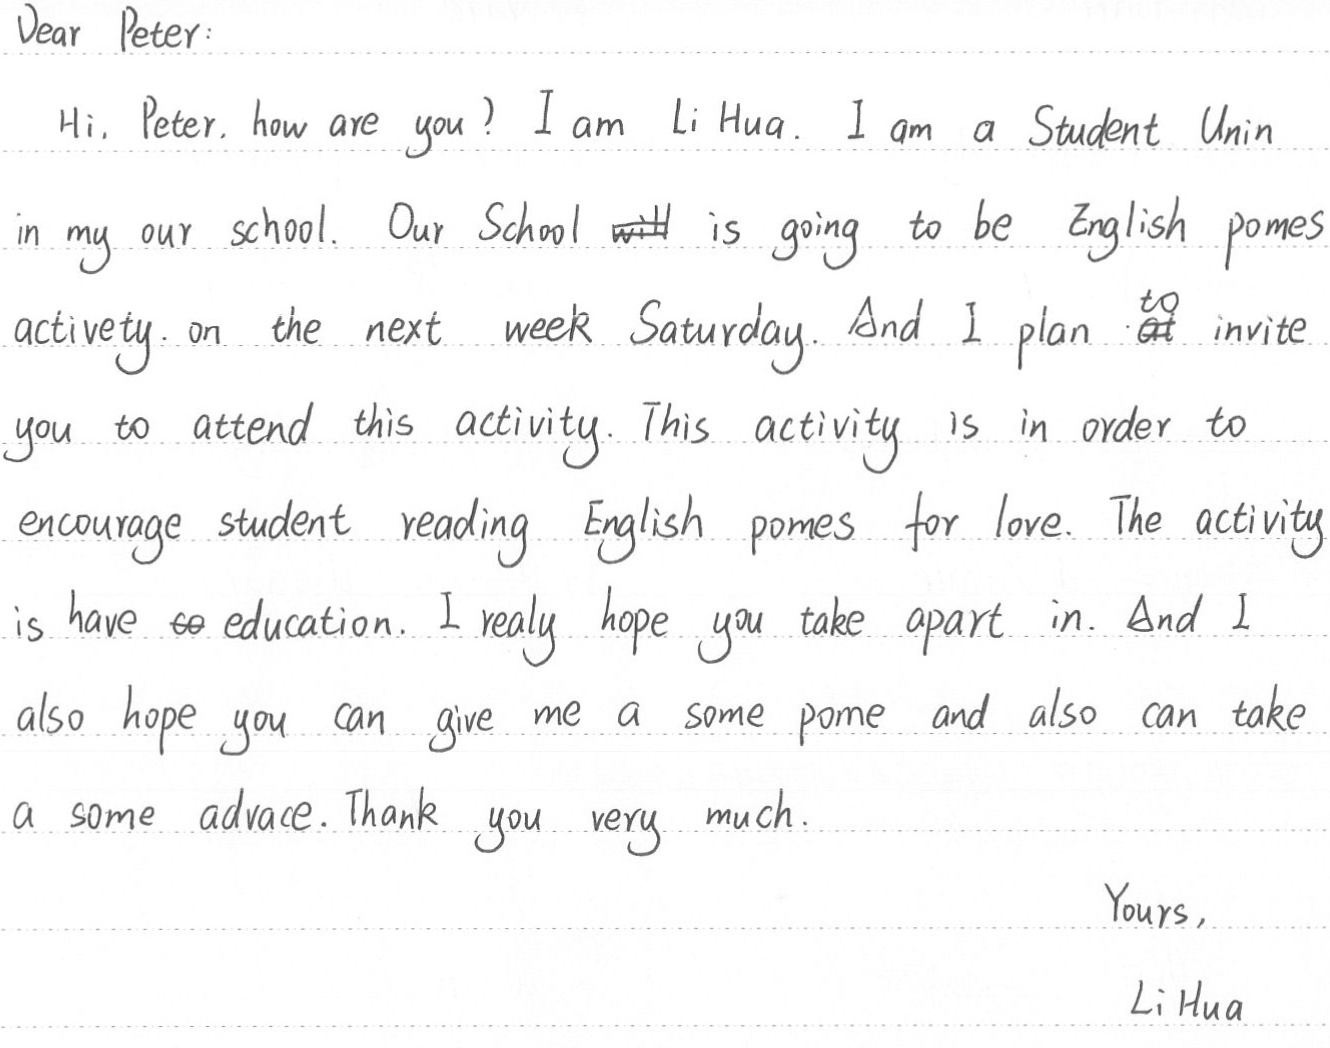 Dear Peter:
Hi, Peter, how are you? I am Li Hua. I am a Student Unin
in my our school. Our School will is going to be English pomes
activety. on the next week Saturday. And I plan to invite
you to attend this activity. This activity is in order to
encourage student reading English pomes for love. The activity
is have so education. I realy hope you take apart in. And I
also hope you can give me a some pome and also can take
a some advace. Thank you very much.
Yours,
Li Hua